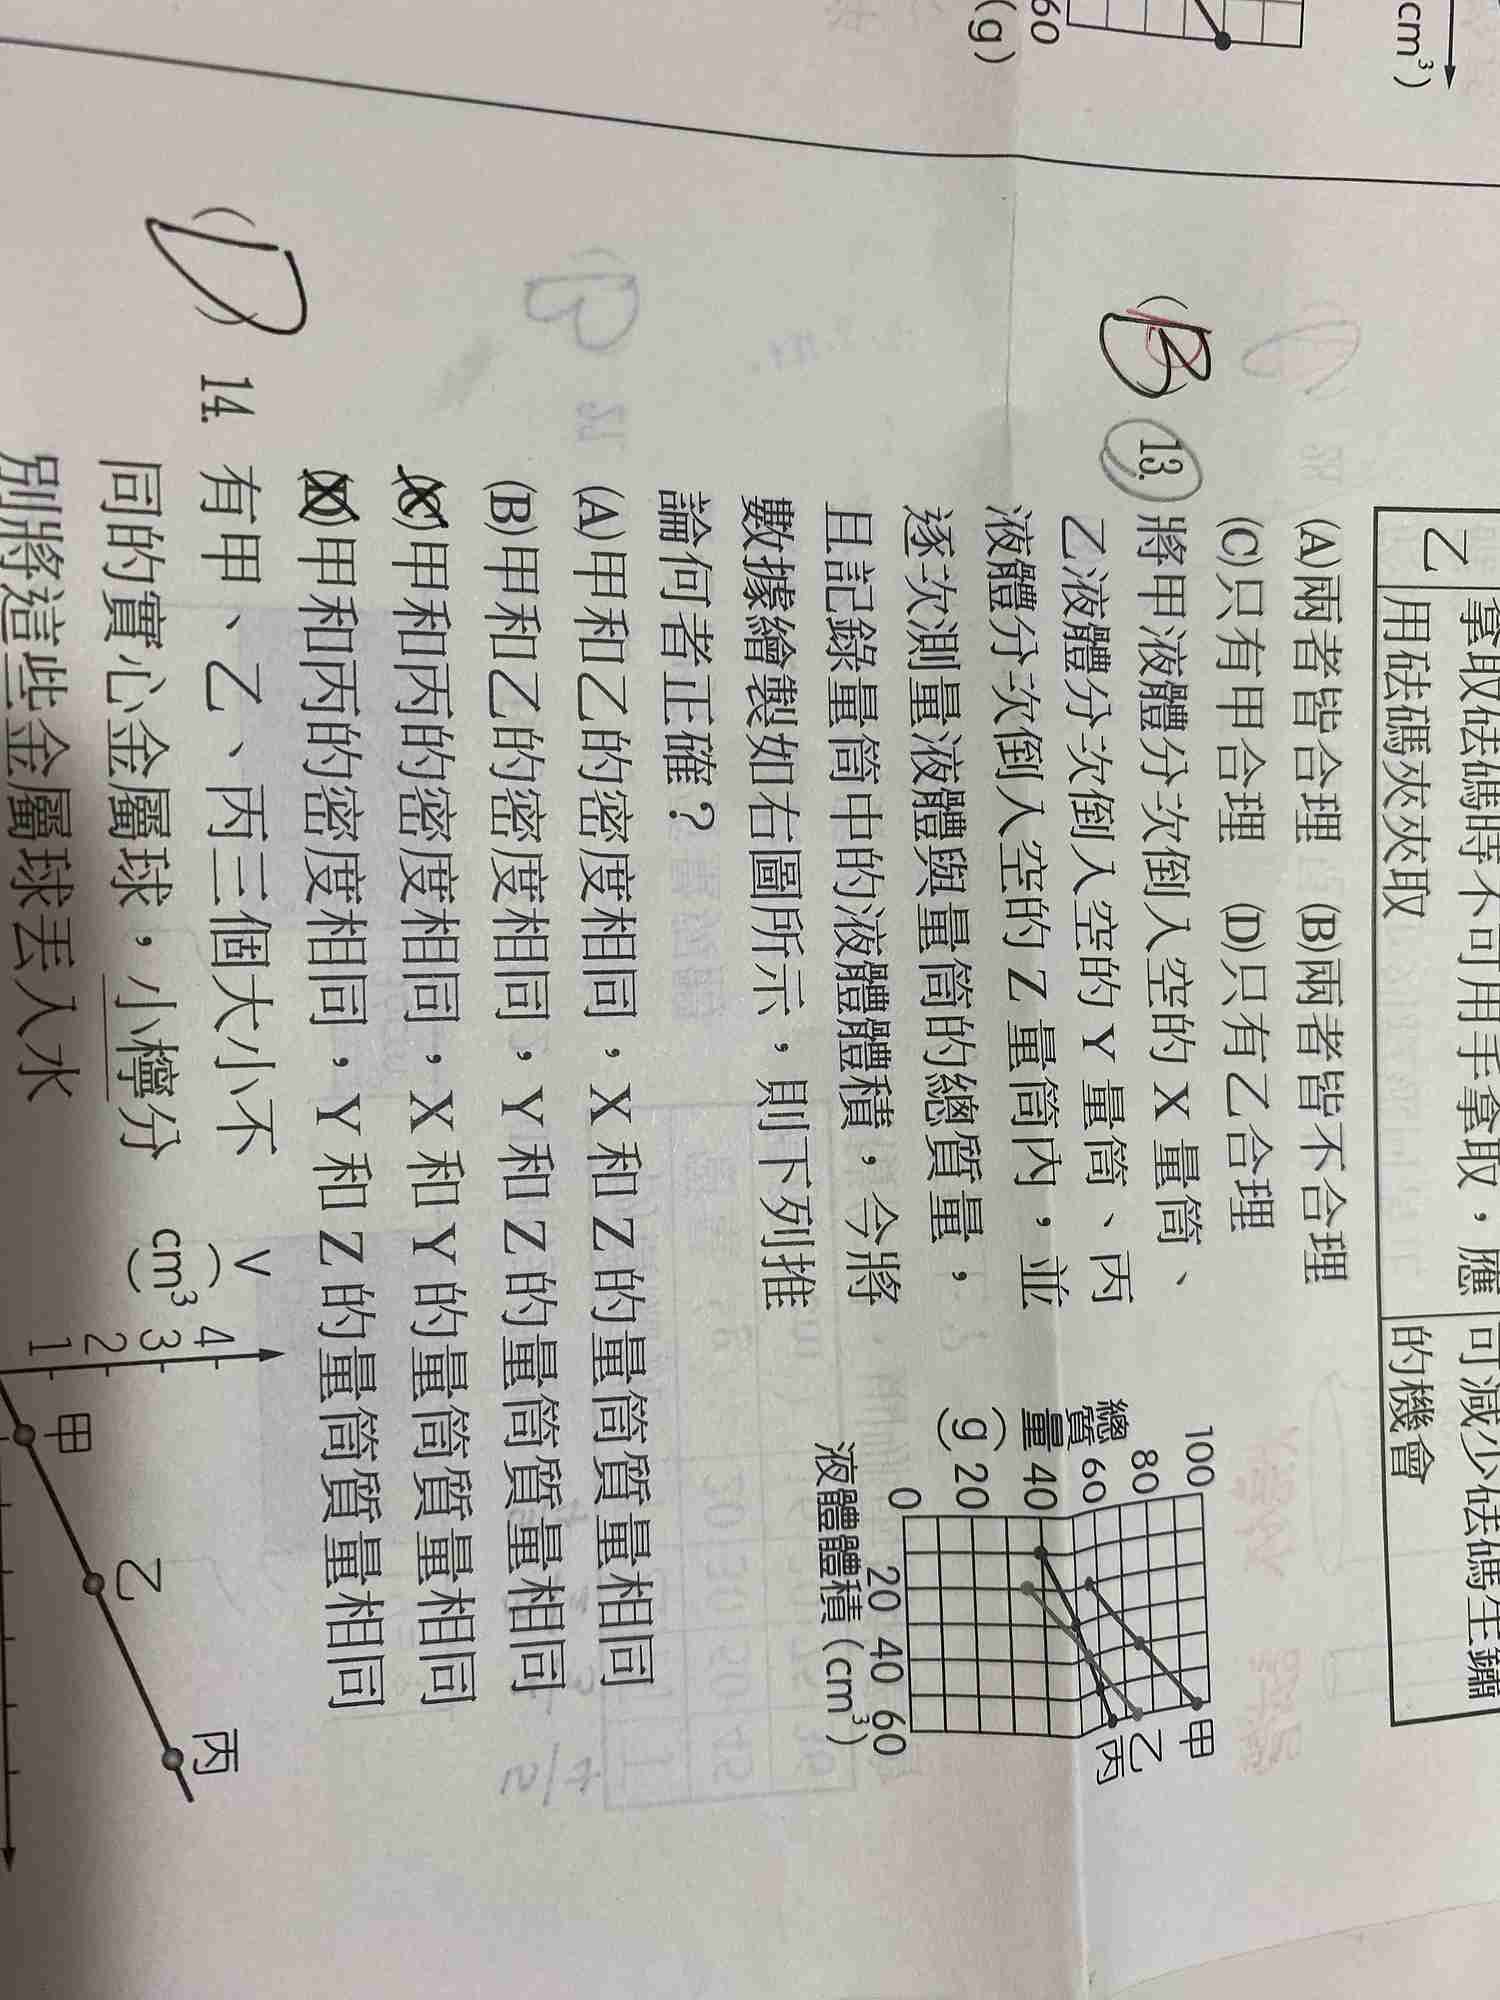 cm³)
60
(g)
拿取砝碼時不可用手拿取，應
可減少砝碼生鏽
乙
用砝碼夾夾取
的機會
(A)兩者皆合理 (B)兩者皆不合理
(C)只有甲合理 (D)只有乙合理
B
13. 將甲液體分次倒入空的 X 量筒、
乙液體分次倒入空的 Y 量筒、丙
液體分次倒入空的 Z 量筒內，並
逐次測量液體與量筒的總質量，
且記錄量筒中的液體體積，今將
數據繪製如右圖所示，則下列推
論何者正確？
總質量(g)
100
80
60
40
20
0
20 40 60
液體體積(cm³)
甲
乙
丙
(A)甲和乙的密度相同，X 和 Z 的量筒質量相同
(B)甲和乙的密度相同，Y 和 Z 的量筒質量相同
(C)甲和丙的密度相同，X 和 Y 的量筒質量相同
(D)甲和丙的密度相同，Y 和 Z 的量筒質量相同
D
14. 有甲、乙、丙三個大小不
同的實心金屬球，小檸分
別將這些金屬球丟入水
V
(cm³)
4
3
2
1
甲
乙
丙